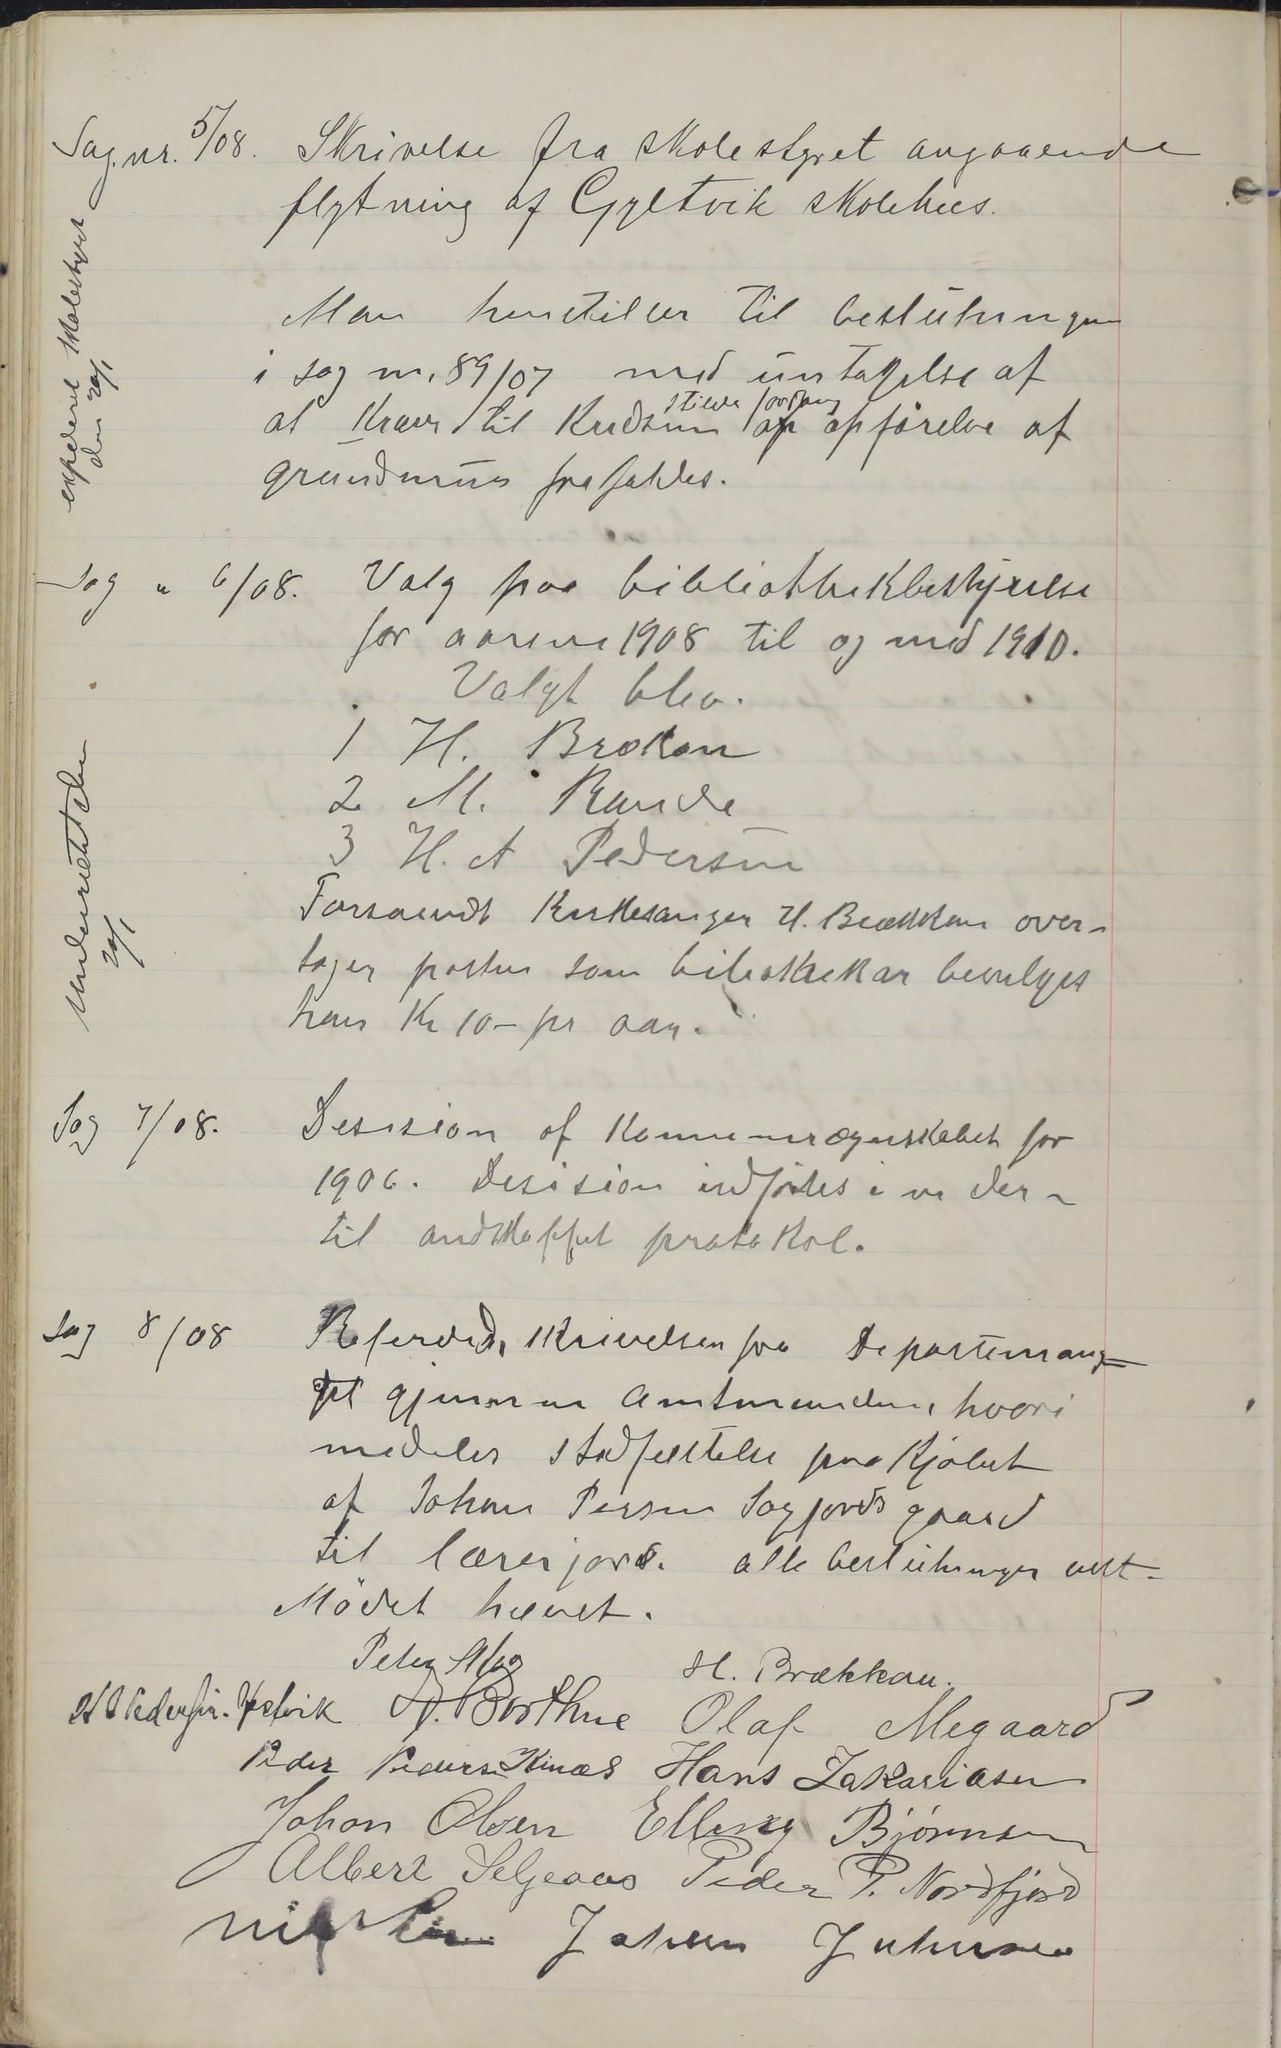 Sag nr. 5/08. Skrivelse fra skolestyret angaaende
flytning af Gyltvik skolehus.
expederet skolestyret
den 20/1
Man henstiller til beslutningen
i sag nr. 89/07 med untagelse af
at krav til kredsen stilles op opførelse af
grundmur frafaldes.
Sag " 6/08. Valg paa bibliothekbestyrelse
for aarene 1908 til og med 1910.
Valgt blev.
1 H. Brækan
2 M. Rande
3 H. A Pedersen
Forsaavidt Kirkesanger H. Brækkan over-
tager posten som bibliothekar bevilges
ham Kr 10- pr aar.
Underrettet den
20/1
Sag 7/08. Desision af Kommuneregnskabet for
1906. Desision indføres i en der-
til andskaffet protokol.
Sag 8/08 Refereredes skrivelse fra Departemang-
et gjennem Amtmanden, hvori
medeles stadfæstelse paa kjøbet
af Johan Persen Sagfjords gaard
til lærerjord. alle beslutninger enst.
Mødet hævet.
Peter H. Brækkan.
Borthne Olaf Megaard
Peder Peders. Kinæs Hans Zakariasen
Johan Olsen Elling Bjørnsen
Albert Seljeaas Peder P. Nordfjord
Johan Johnsen